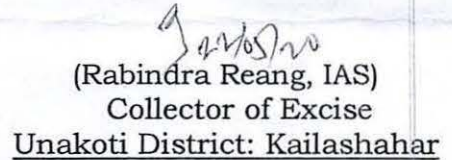 22/05/20
(Rabindra Reang, IAS)
Collector of Excise
Unakoti District: Kailashahar